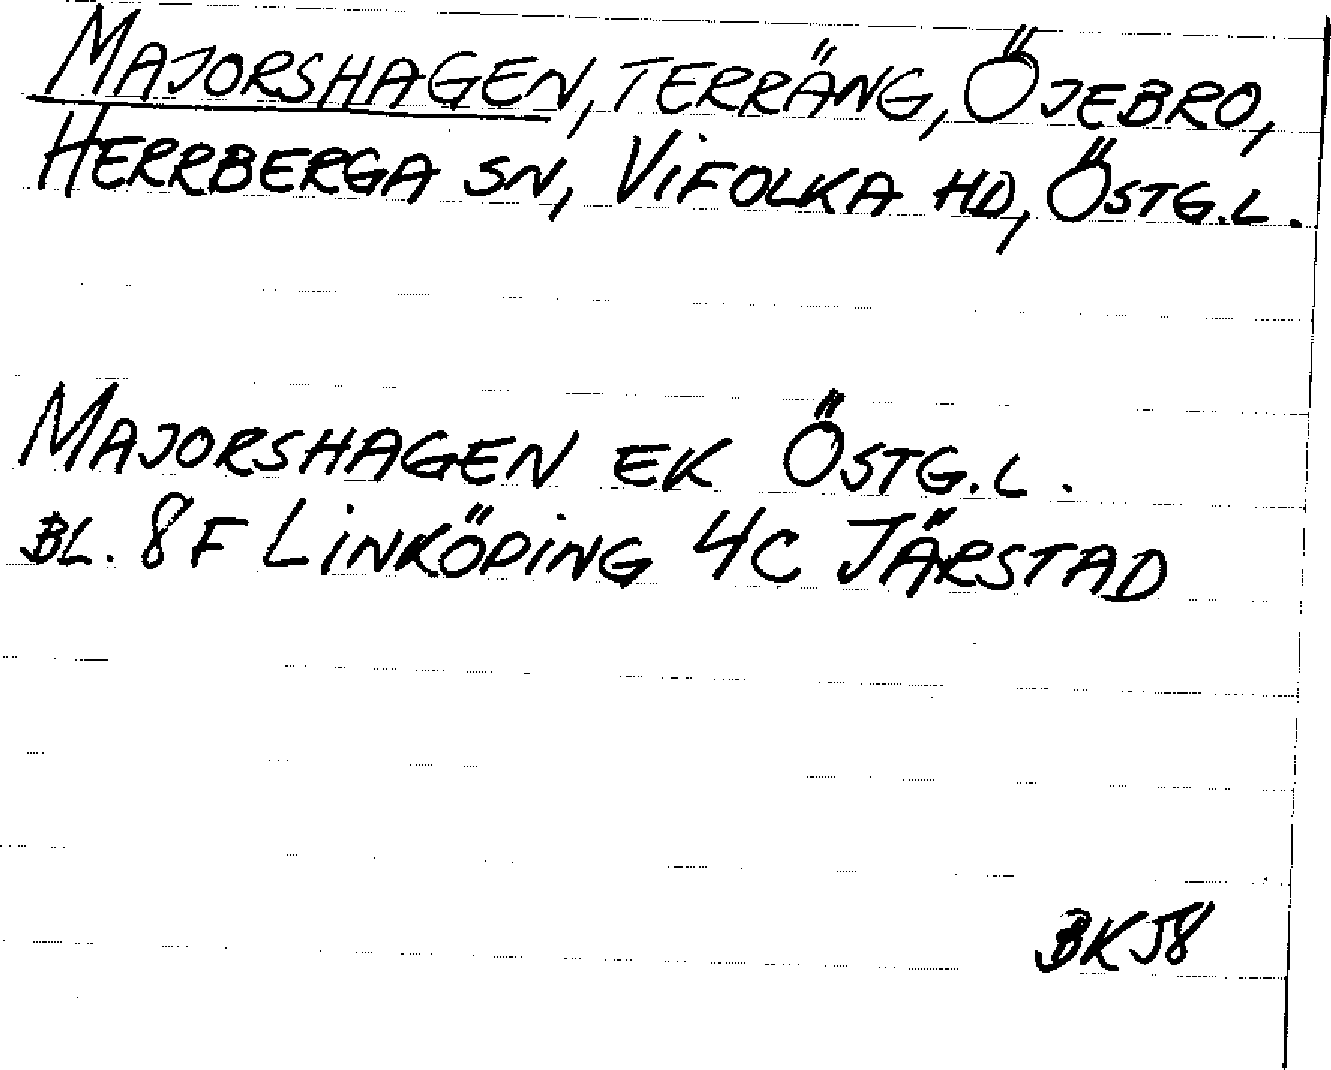 MAJORSHAGEN, TERRÄNG, ÖJEBRO,
HERRBERGA SN, VIFOLKA HD, ÖSTG.L.
MAJORSHAGEN EK ÖSTG.L.
BL. 8F LINKÖPING 4C JÄRSTAD
BKJ8